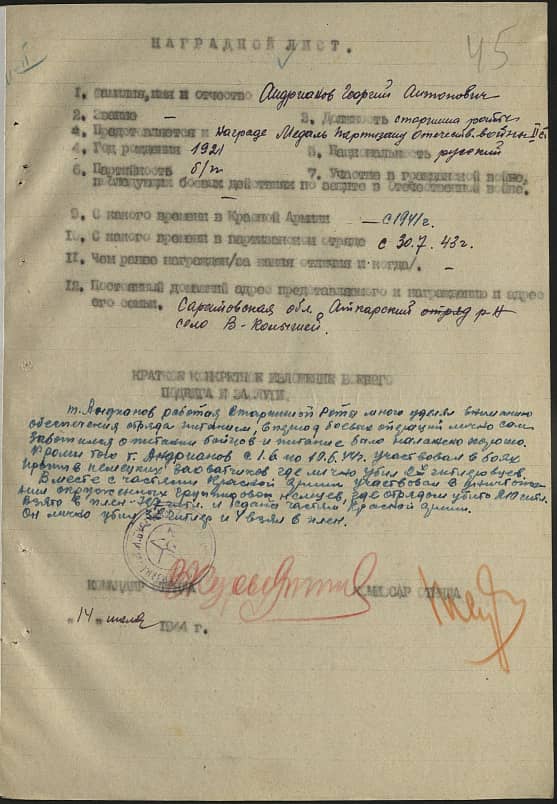 45
НАГРАДНОЙ ЛИСТ.
1. Фамилия, имя и отчество Андрианов Георгий Антонович
2. Звание – 3. Должность старшина роты
4. Представляется к награде Медаль Партизану отечеств. войны II ст
4. Год рождения 1921 5. Национальность русский
6. Партийность б/п 7. Участие в гражданской войне,
последующих боевых действиях по защите в Отечественной войне.
–
9. С какого времени в Красной Армии – с 1941 г.
10. С какого времени в партизанском отряде с 30.7.43 г.
11. Чем ранее награжден/за какия отличия и когда/. –
12. Постоянный домашний адрес представляемого к награждению и адрес
его семьи. Саратовская обл. Аткарский отряд р-н
село В-Копышей.
КРАТКОЕ КОНКРЕТНОЕ ИЗЛОЖЕНИЕ БОЕВОГО
ПОДВИГА И ЗАСЛУГИ.
т. Андрианов работая Старшиной Роты много уделял внимания
обеспечения отряда питанием, в период боевых операций лично сам
Заботился о питании бойцов и питание было налажено хорошо.
Кроми того т. Андрианов с 1.6 по 10.6.44г. участвовал в боях
против немецких захватчиков где лично убил 2х гитлеровцев.
Вместе с частями Красной армии участвовал в уничтоже-
нии окруженных группировок немцев, где отрядом убито
взято в плен и сдано частям Красной армии.
Он лично убил и 4 взял в плен.
КОМАНДИР ОТРЯДА КОМИССАР ОТРЯДА
"14" июля 1944 г.